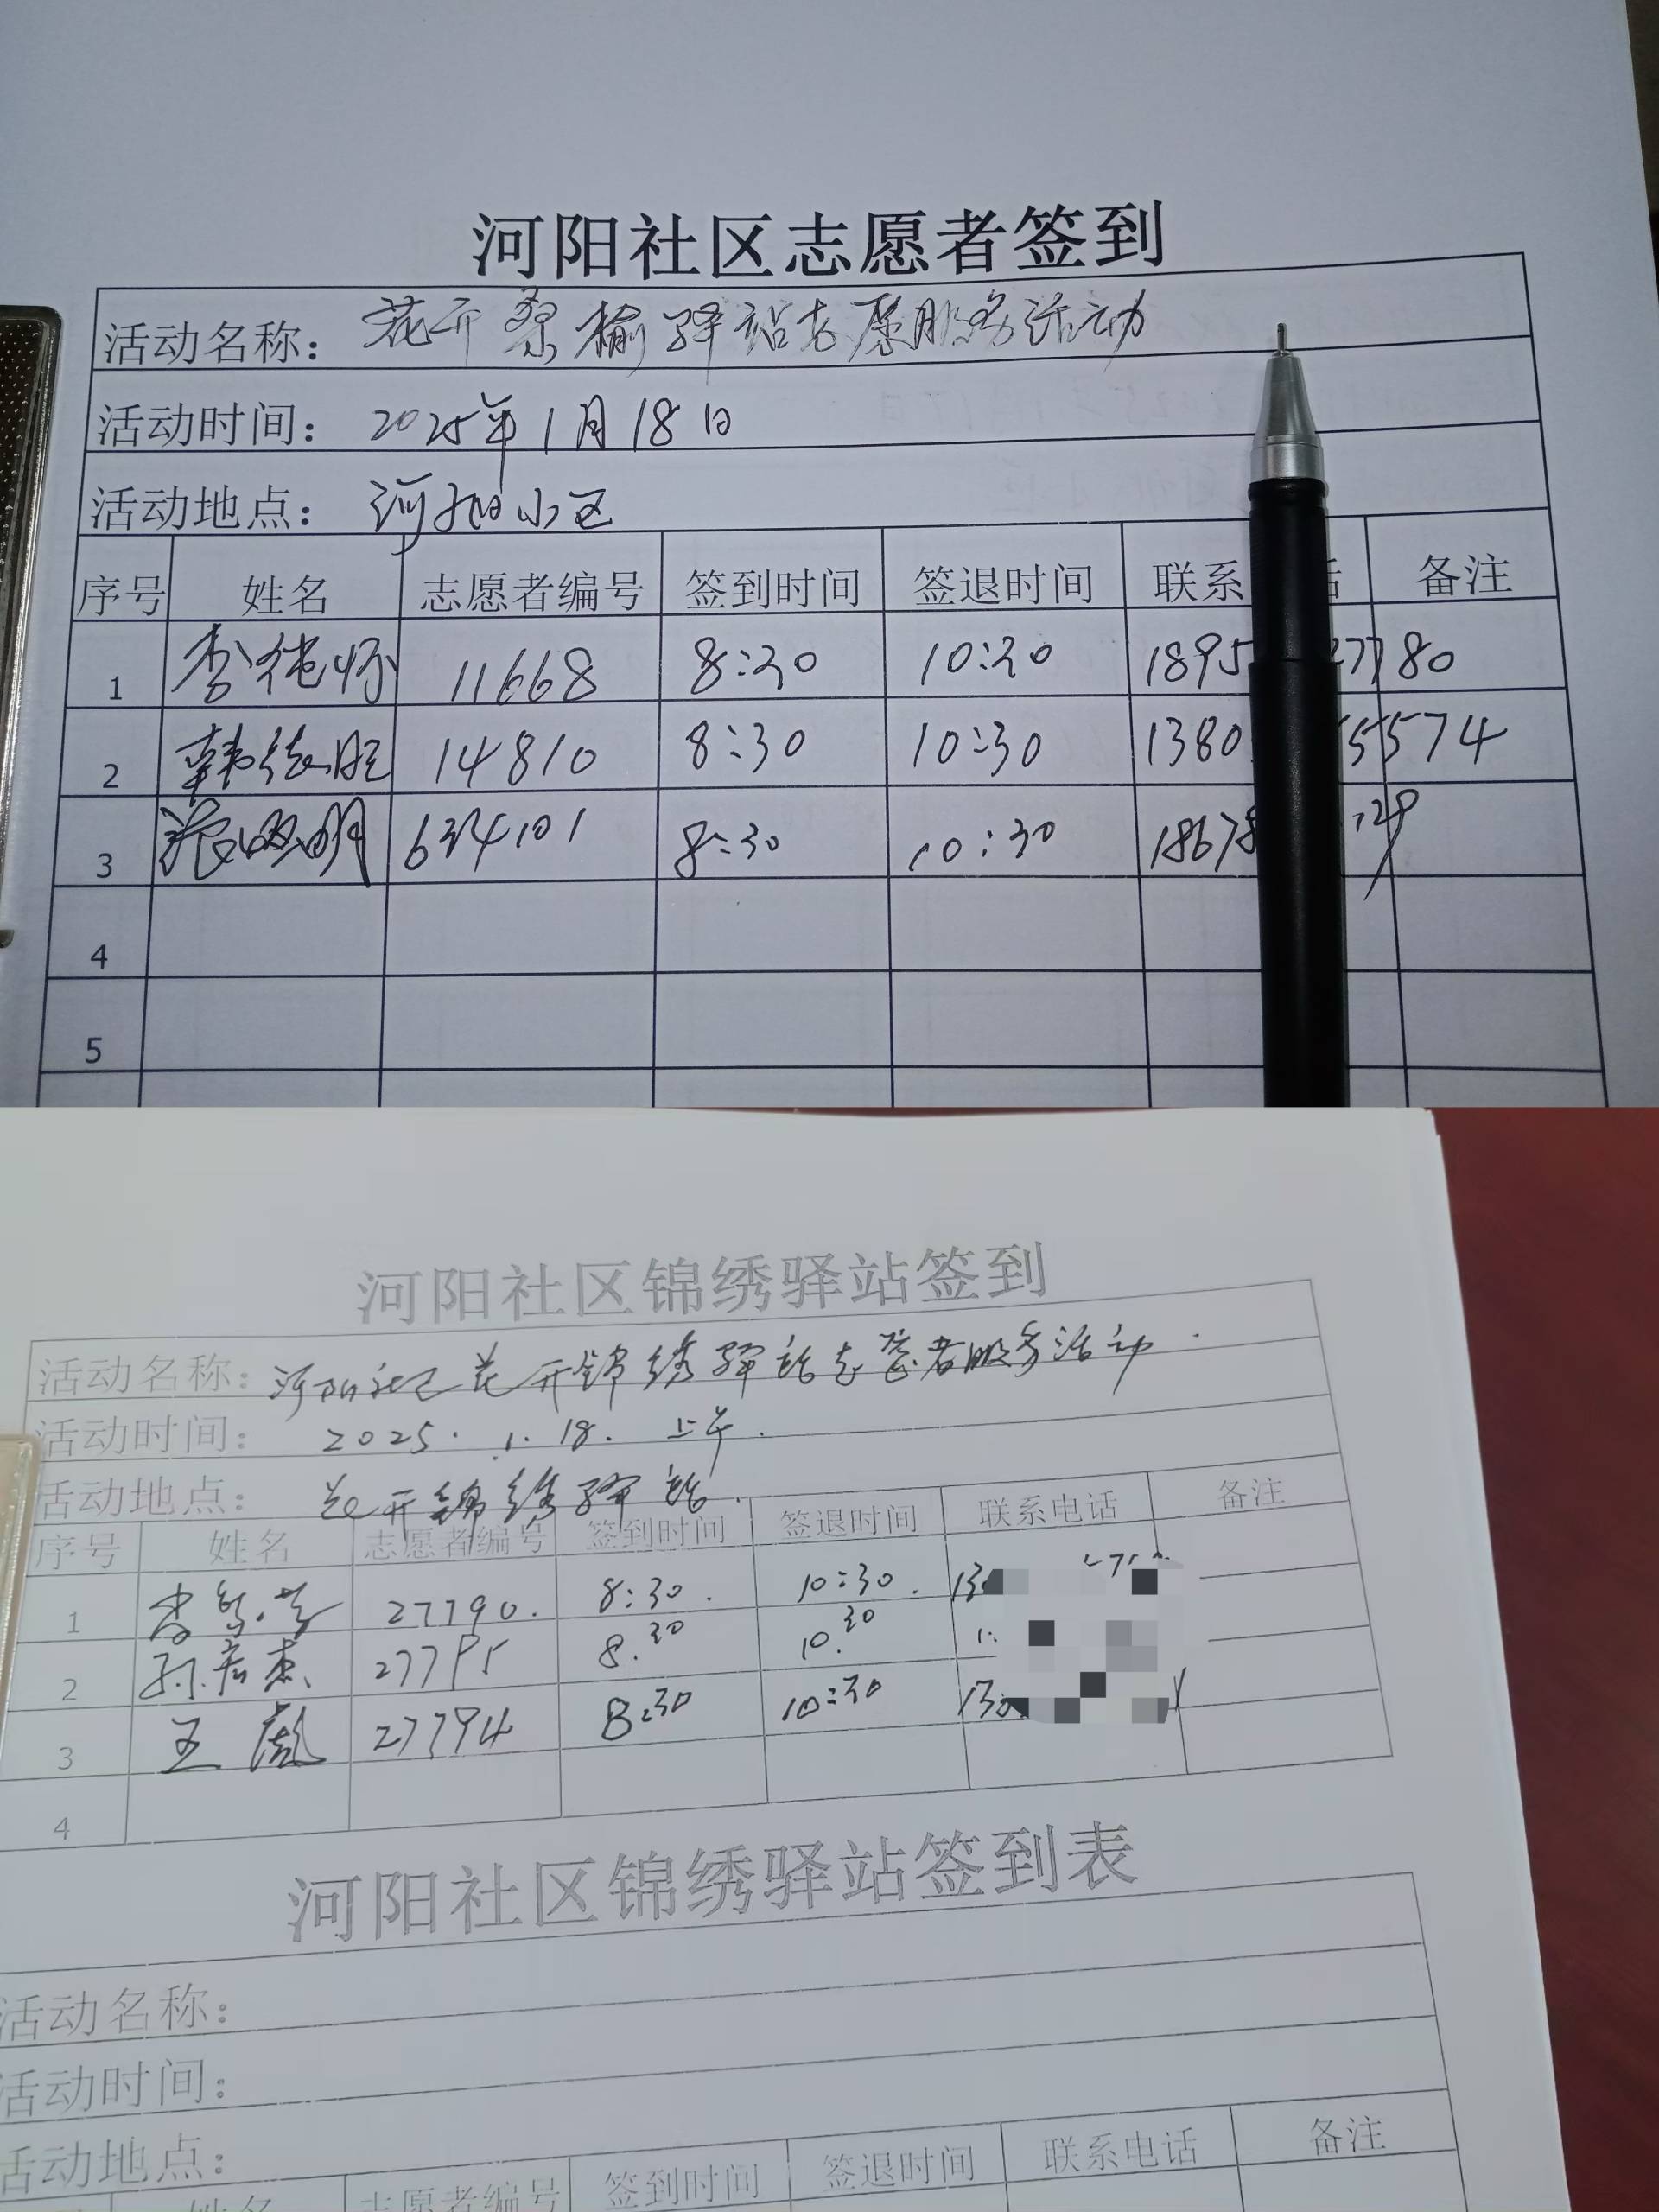 河阳社区志愿者签到
活动名称：花开桑榆驿站志愿服务活动
活动时间：2025年1月18日
活动地点：河阳小区
序号 姓名 志愿者编号 签到时间 签退时间 联系 备注
1 李德怀 11668 8:30 10:30 1895 2780
2 韩德胜 14810 8:30 10:30 1380 5574
3 634101 8:30 10:30 18678
4
5
河阳社区锦绣驿站签到
活动名称：河阳社区花开锦绣驿站志愿者服务活动.
活动时间：2025.1.18.上午.
活动地点：花开锦绣驿站.
序号 姓名 志愿者编号 签到时间 签退时间 联系电话 备注
1 27790. 8:30. 10:30. 13
2 27795 8.30 10.30
3 王彪 27794 8:30 10:30 130
4
河阳社区锦绣驿站签到表
活动名称：
活动时间：
活动地点：
姓名 志愿者编号 签到时间 签退时间 联系电话 备注